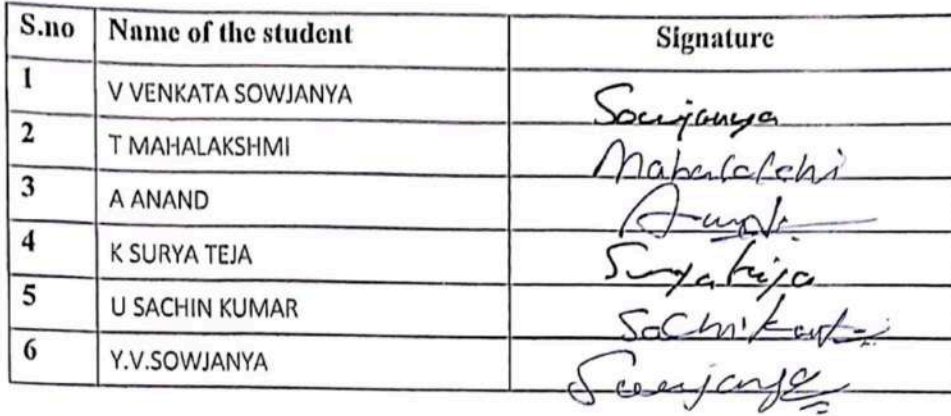 S.no Name of the student Signature
1 V VENKATA SOWJANYA Sowjanya
2 T MAHALAKSHMI Mahalakshmi
3 A ANAND Anand
4 K SURYA TEJA Suryateja
5 U SACHIN KUMAR
6 Y.V.SOWJANYA Sowjanya